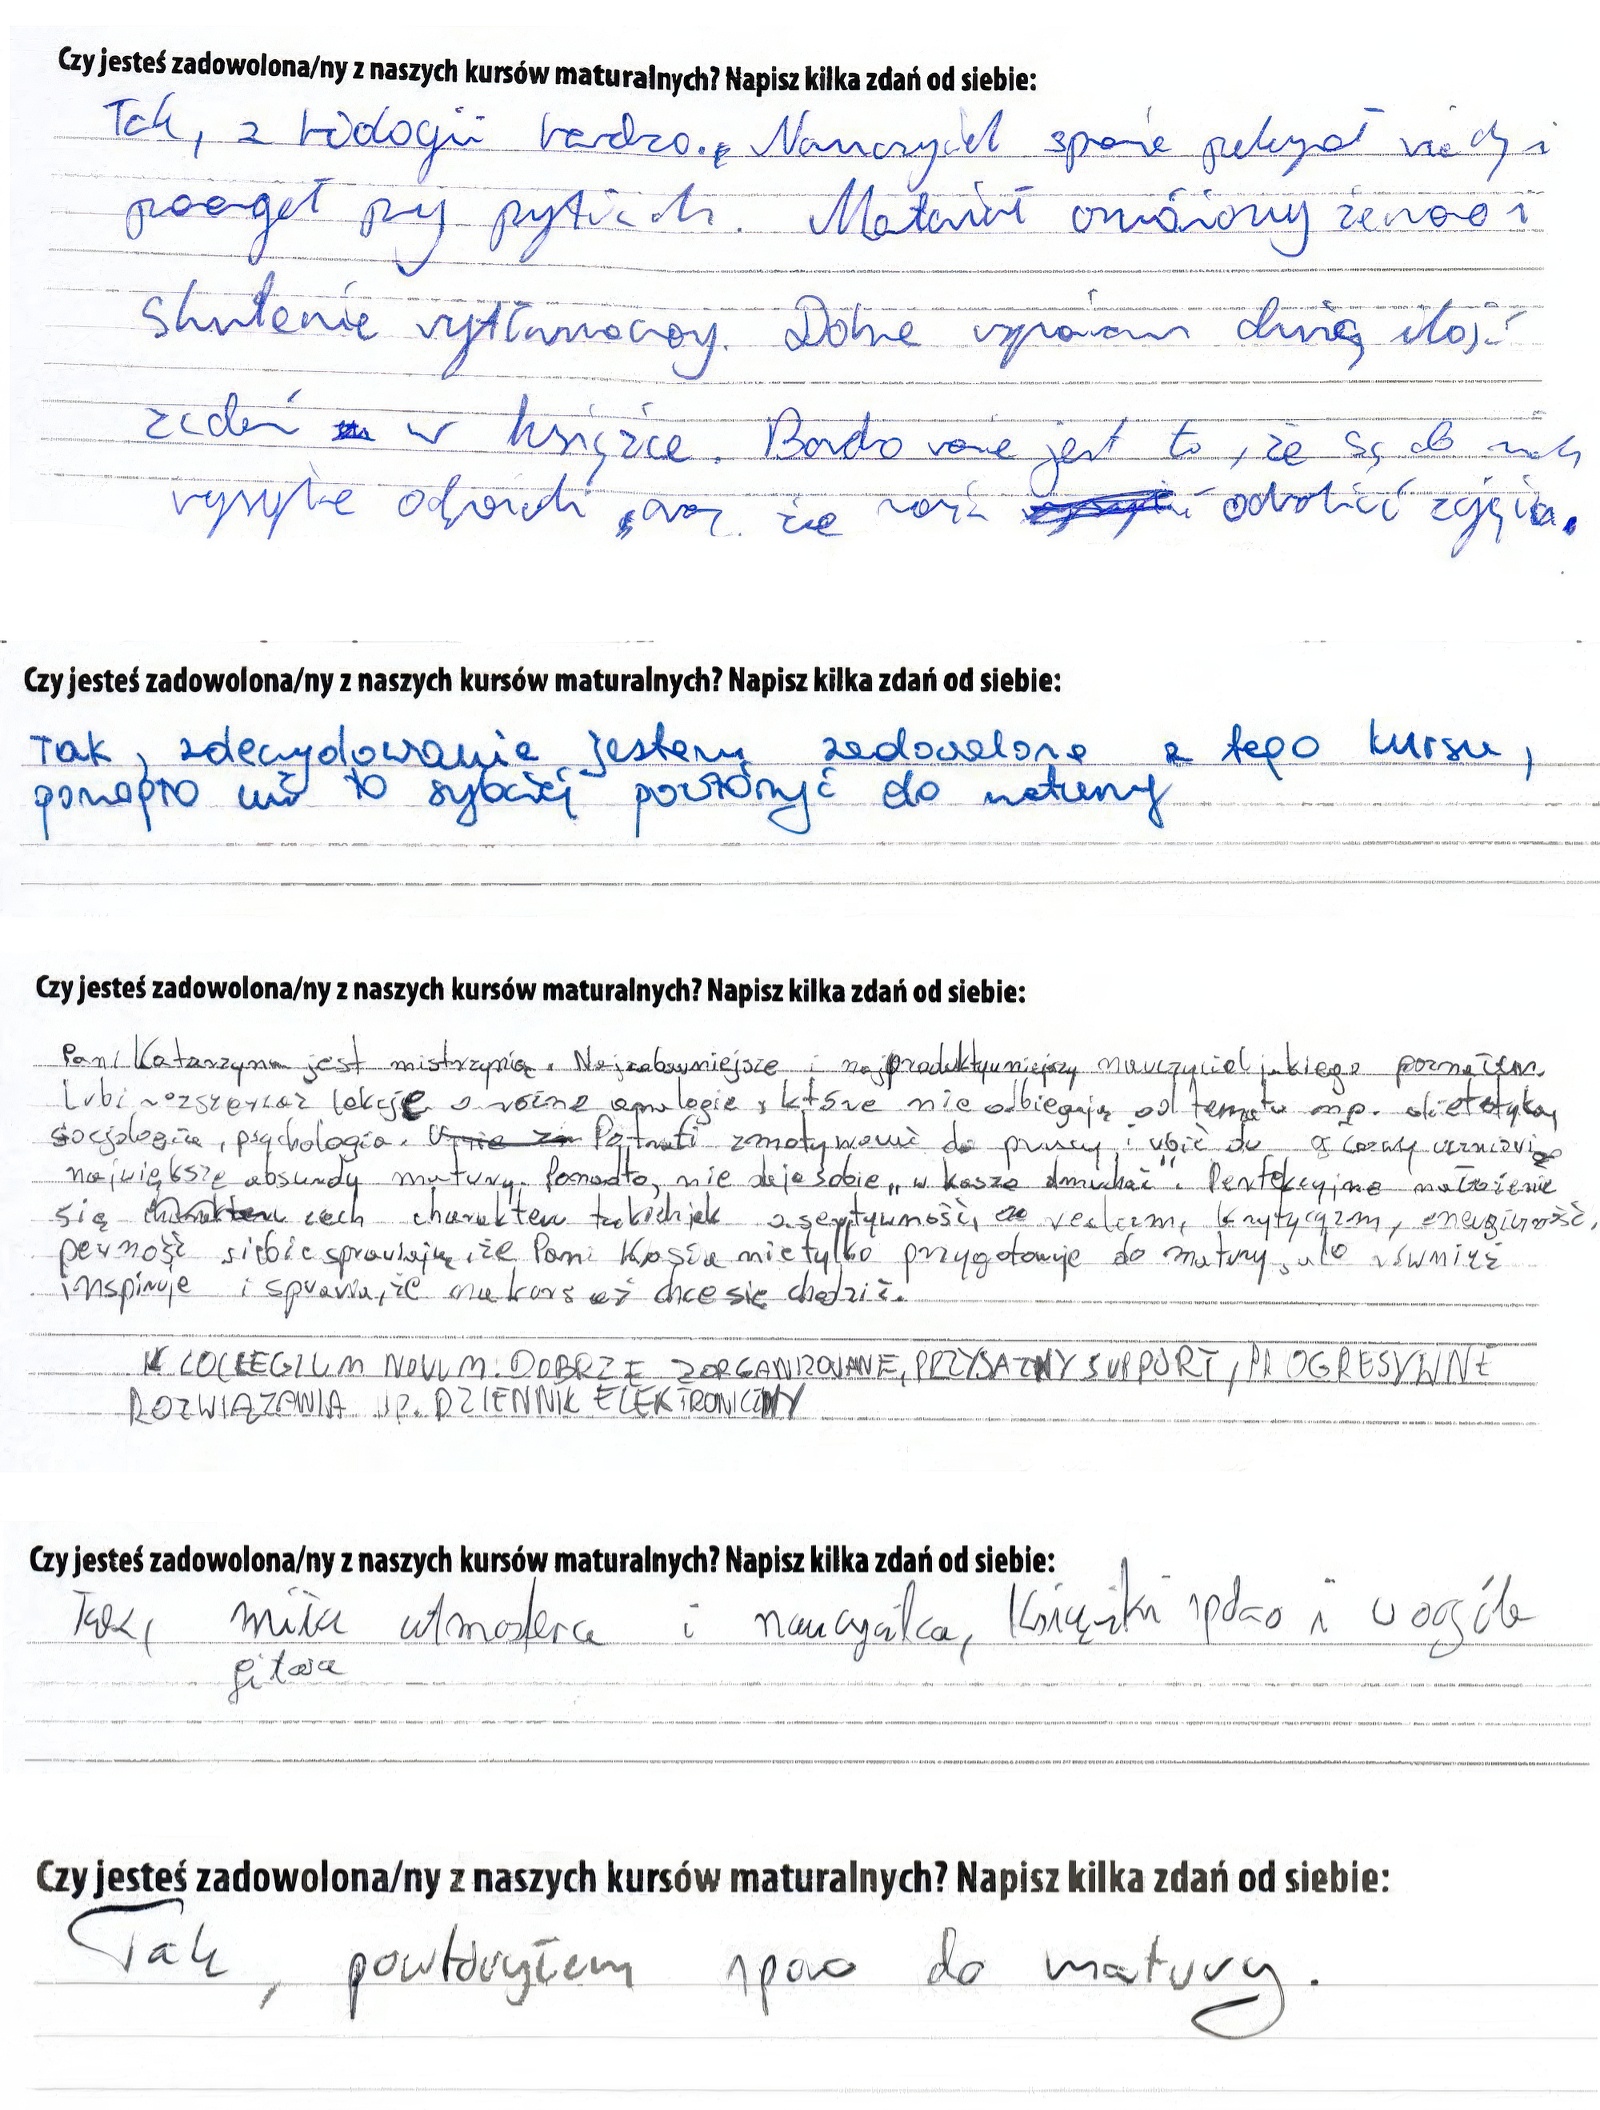 Czy jesteś zadowolona/ny z naszych kursów maturalnych? Napisz kilka zdań od siebie:
Tak, z biologii bardzo. Nauczyciel sprawnie przekazał wiedzę i
pomagał przy pytaniach. Materiał omówiony ciekawie i
skutecznie wytłumaczony. Dobrze wspominam dużą ilość
zadań w książce. Bardo ważne jest to, że są do nich
wszystkie odpowiedzi, oraz że można odrobić zajęcia.
Czy jesteś zadowolona/ny z naszych kursów maturalnych? Napisz kilka zdań od siebie:
Tak, zdecydowanie jestem zadowolona z tego kursu,
pomogło mi to szybciej powtórzyć do matury
Czy jesteś zadowolona/ny z naszych kursów maturalnych? Napisz kilka zdań od siebie:
Pani Katarzyna jest mistrzynią. Najzabawniejsze i najproduktywniejszy nauczyciel jakiego poznałem.
Lubi rozszerzać lekcje o różne analogie, które nie odbiegają od tematu np. dietetyka,
socjologia, psychologia. Potrafi zmotywować do pracy i wbić do głowy uczniowi
największe absurdy matury. Ponadto, nie daje sobie „w kasze dmuchać". Perfekcyjne nałożenie
się cech charakteru takich jak asertywność, realizm, krytycyzm, energiczność,
pewność siebie sprawiają, że Pani Kasia nie tylko przygotowuje do matury, ale również
inspiruje i sprawia, że na kurs aż chce się chodzić.
COLLEGIUM NOVUM: DOBRZE ZORGANIZOWANE, PRZYJAZNY SUPPORT, PROGRESYWNE
ROZWIĄZANIA NP. DZIENNIK ELEKTRONICZNY
Czy jesteś zadowolona/ny z naszych kursów maturalnych? Napisz kilka zdań od siebie:
Tak, miła atmosfera i nauczycielka, książki spoko i w ogóle
gitara
Czy jesteś zadowolona/ny z naszych kursów maturalnych? Napisz kilka zdań od siebie:
Tak, powtórzyłem sporo do matury.